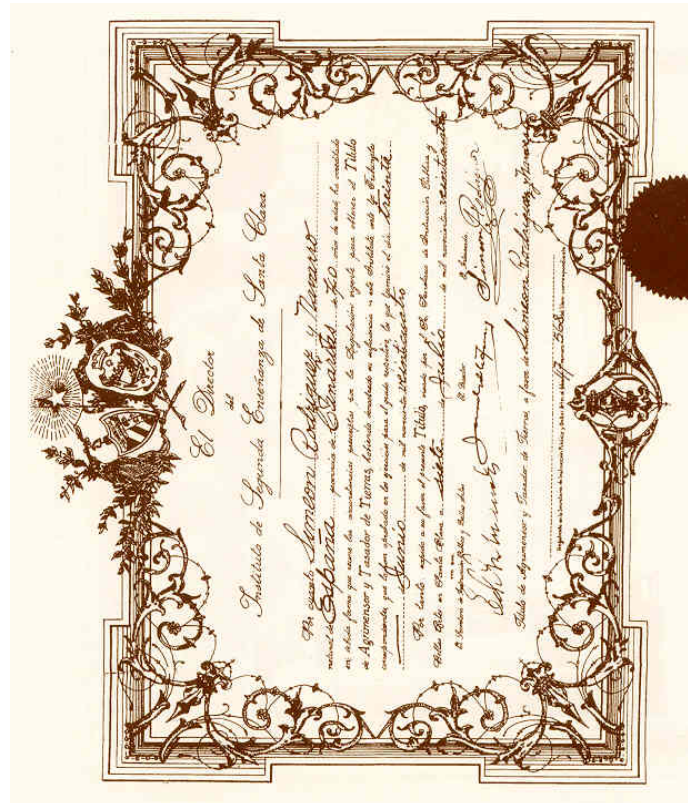 El Director
del
Instituto de Segunda Enseñanza de Santa Clara
Por cuanto Simeon Rodriguez y Navarro
natural de España provincia de Canarias de 40 años de edad, ha acreditado
en debida forma que reune las condiciones por la legislación vigente para obtener el Titulo
de Agrimensor y Tasador de Tierras, habiendo demostrado su suficiencia en este Instituto ante el Tribunal
correspondiente, que le aprobado en los ejercicios para el grado el dia treinta
de Junio de mil novecientos veinticuatro
Por tanto, expido a su favor el presente Titulo, por la Secretaría de Instrucción Pública y
Bellas Artes en Santa Clara a siete de Julio de mil novecientos veinticuatro
El Secretario de Instrucción Pública y Bellas Artes
El Director
El Secretario
Titulo de Agrimensor y Tasador de Tierras, a favor de Simeon Rodriguez y Navarro